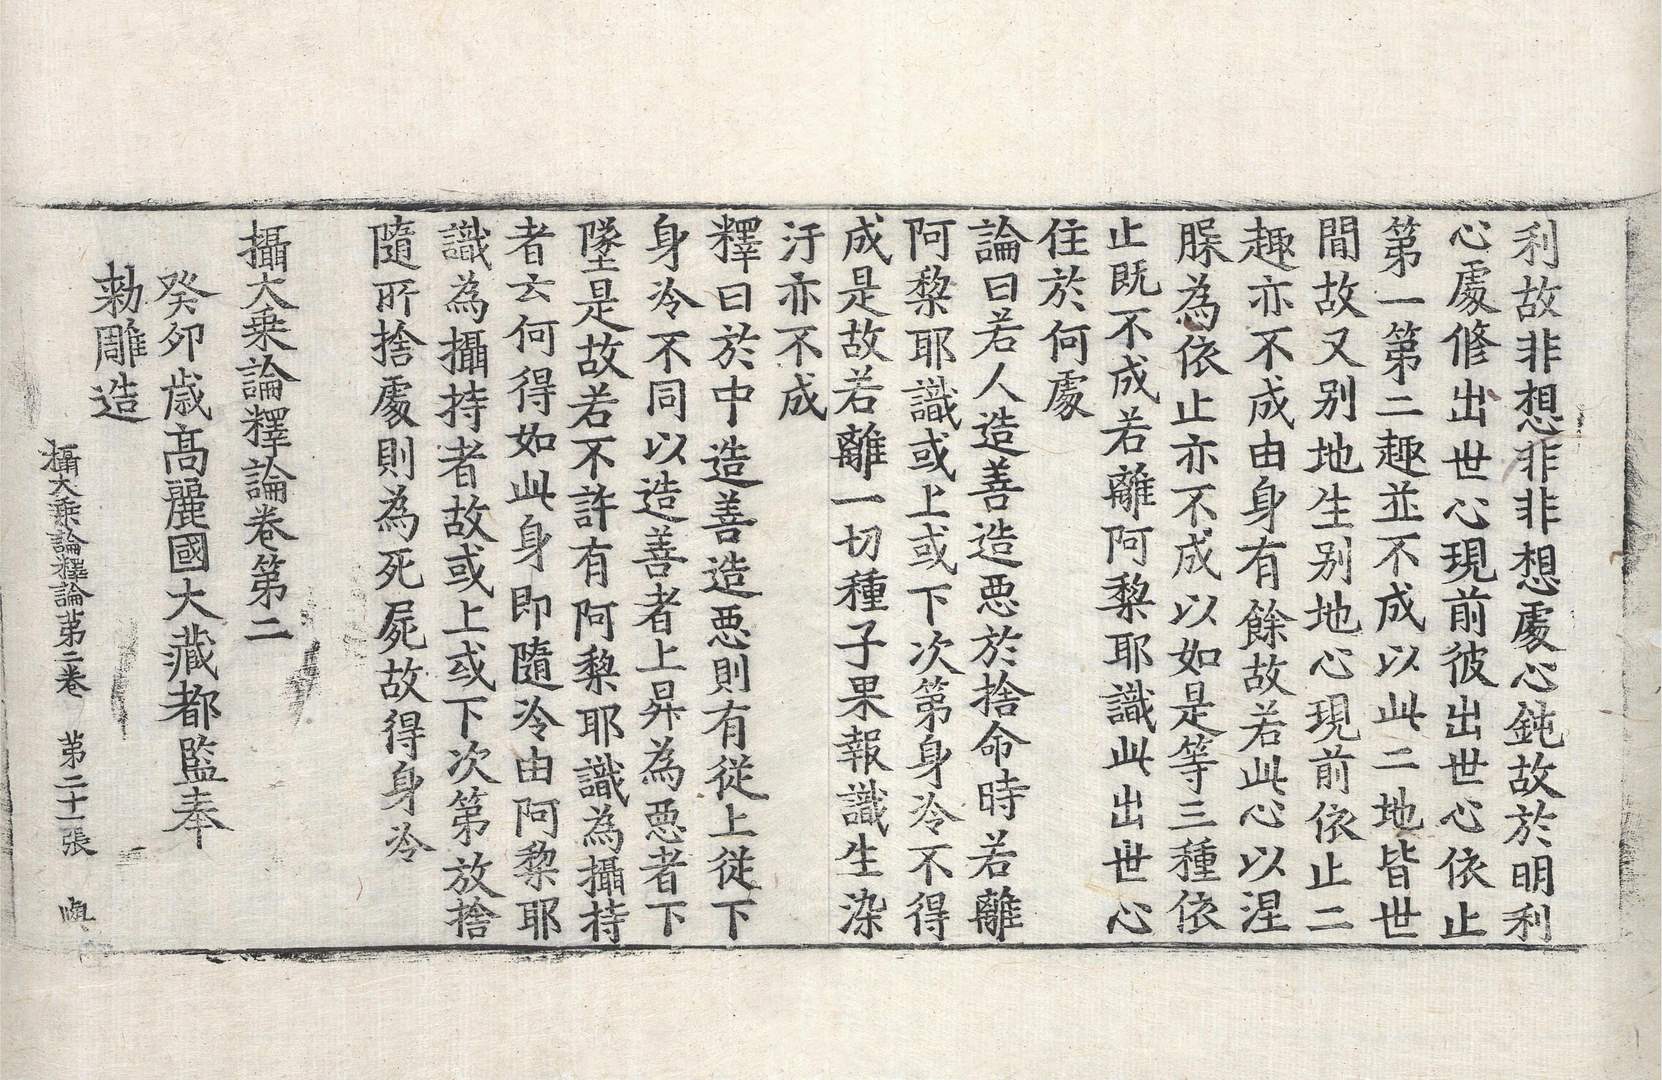 利故非想非非想處心鈍故於明利
心處修出世心現前彼出世心依止
第一第二趣並不成以此二地皆世
間故又别地生别地心現前依止二
趣亦不成由身有餘故若此心以涅
脲為依止亦不成以如是等三種依
止既不成若離阿黎耶識此出世心
住於何處
論曰若人造善造惡於捨命時若離
阿黎耶識或上或下次第身冷不得
成是故若離一切種子果報識生染
汙亦不成
釋曰於中造善造惡則有從上從下
身冷不同以造善者上昇為惡者下
墜是故若不許有阿黎耶識為攝持
者云何得如此身即隨冷由阿黎耶
識為攝持者故或上或下次第放捨
隨所捨處則為死屍故得身冷
攝大乗論釋論卷第二
癸卯歳高麗國大藏都監奉
勅雕造
攝大乗論釋論第二卷 第二十一張